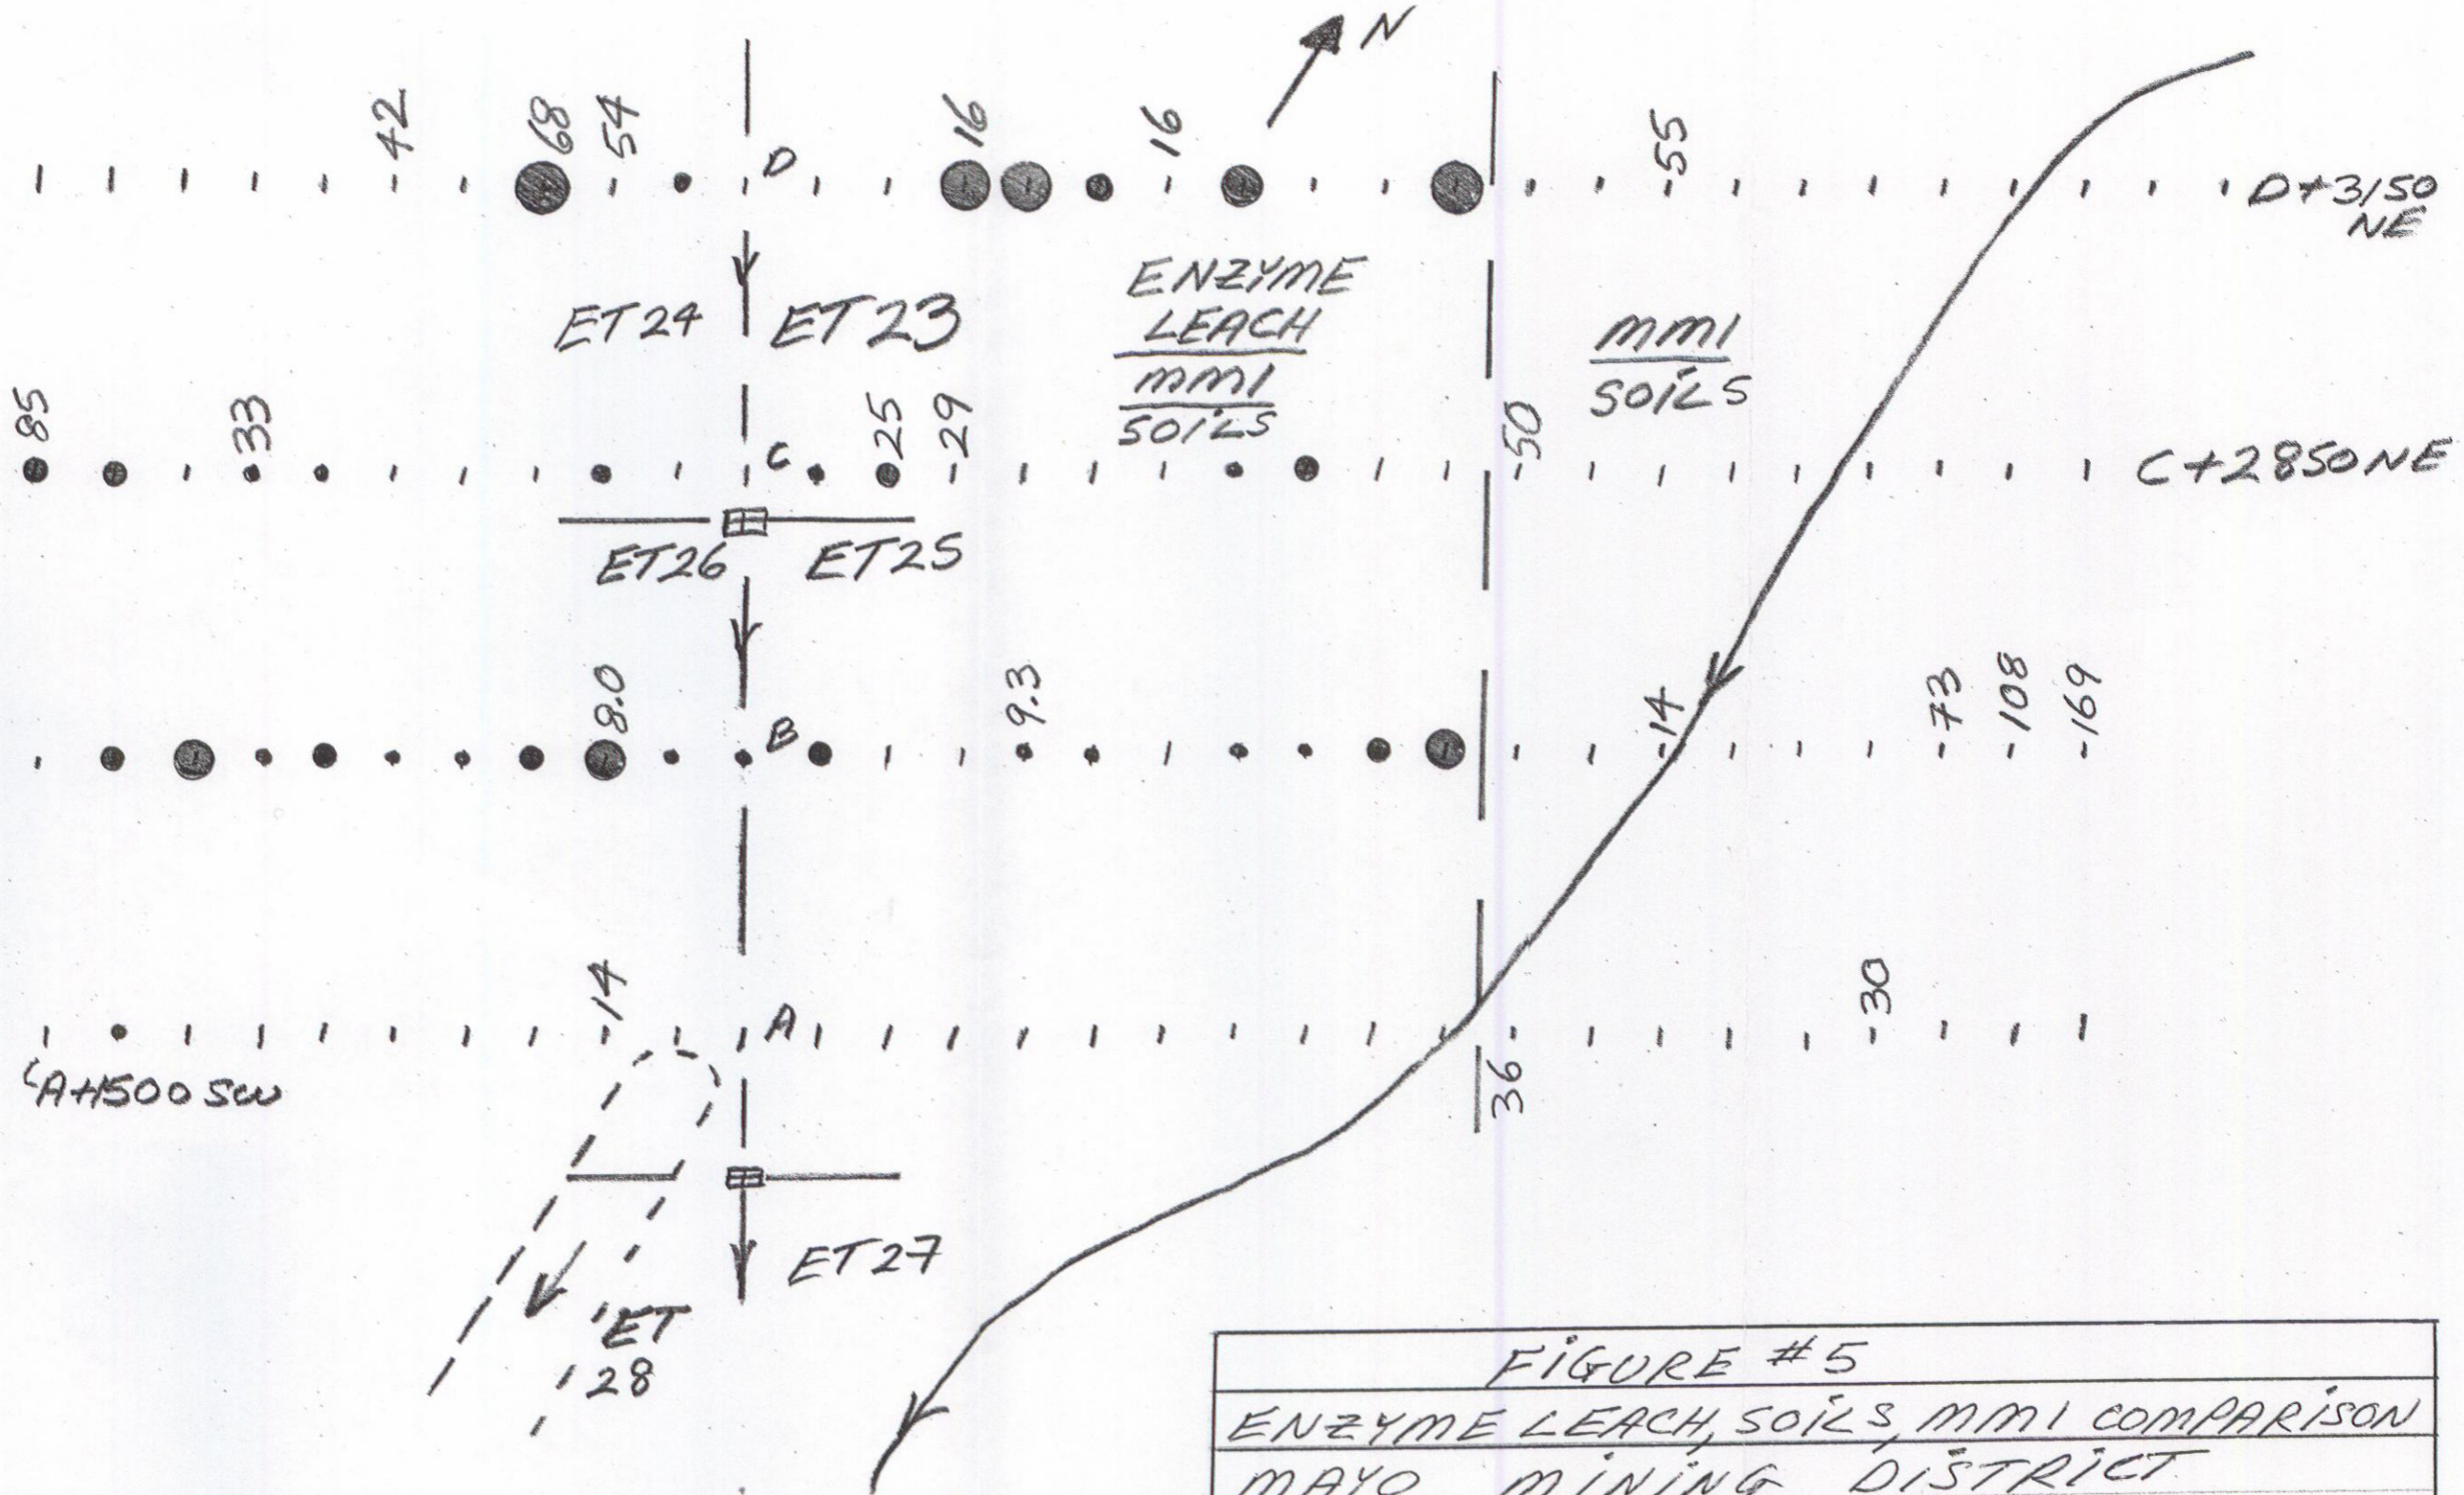 N
42
68
54
16
16
55
D
D+3150
NE
ET24
ET23
ENZYME
LEACH
MMI
SOILS
MMI
SOILS
85
33
25
29
50
C
C+2850NE
ET26
ET25
8.0
9.3
14
73
108
169
B
14
30
A
A+1500SW
36
ET27
ET
28
FIGURE #5
ENZYME LEACH, SOILS, MMI COMPARISON
MAYO MINING DISTRICT